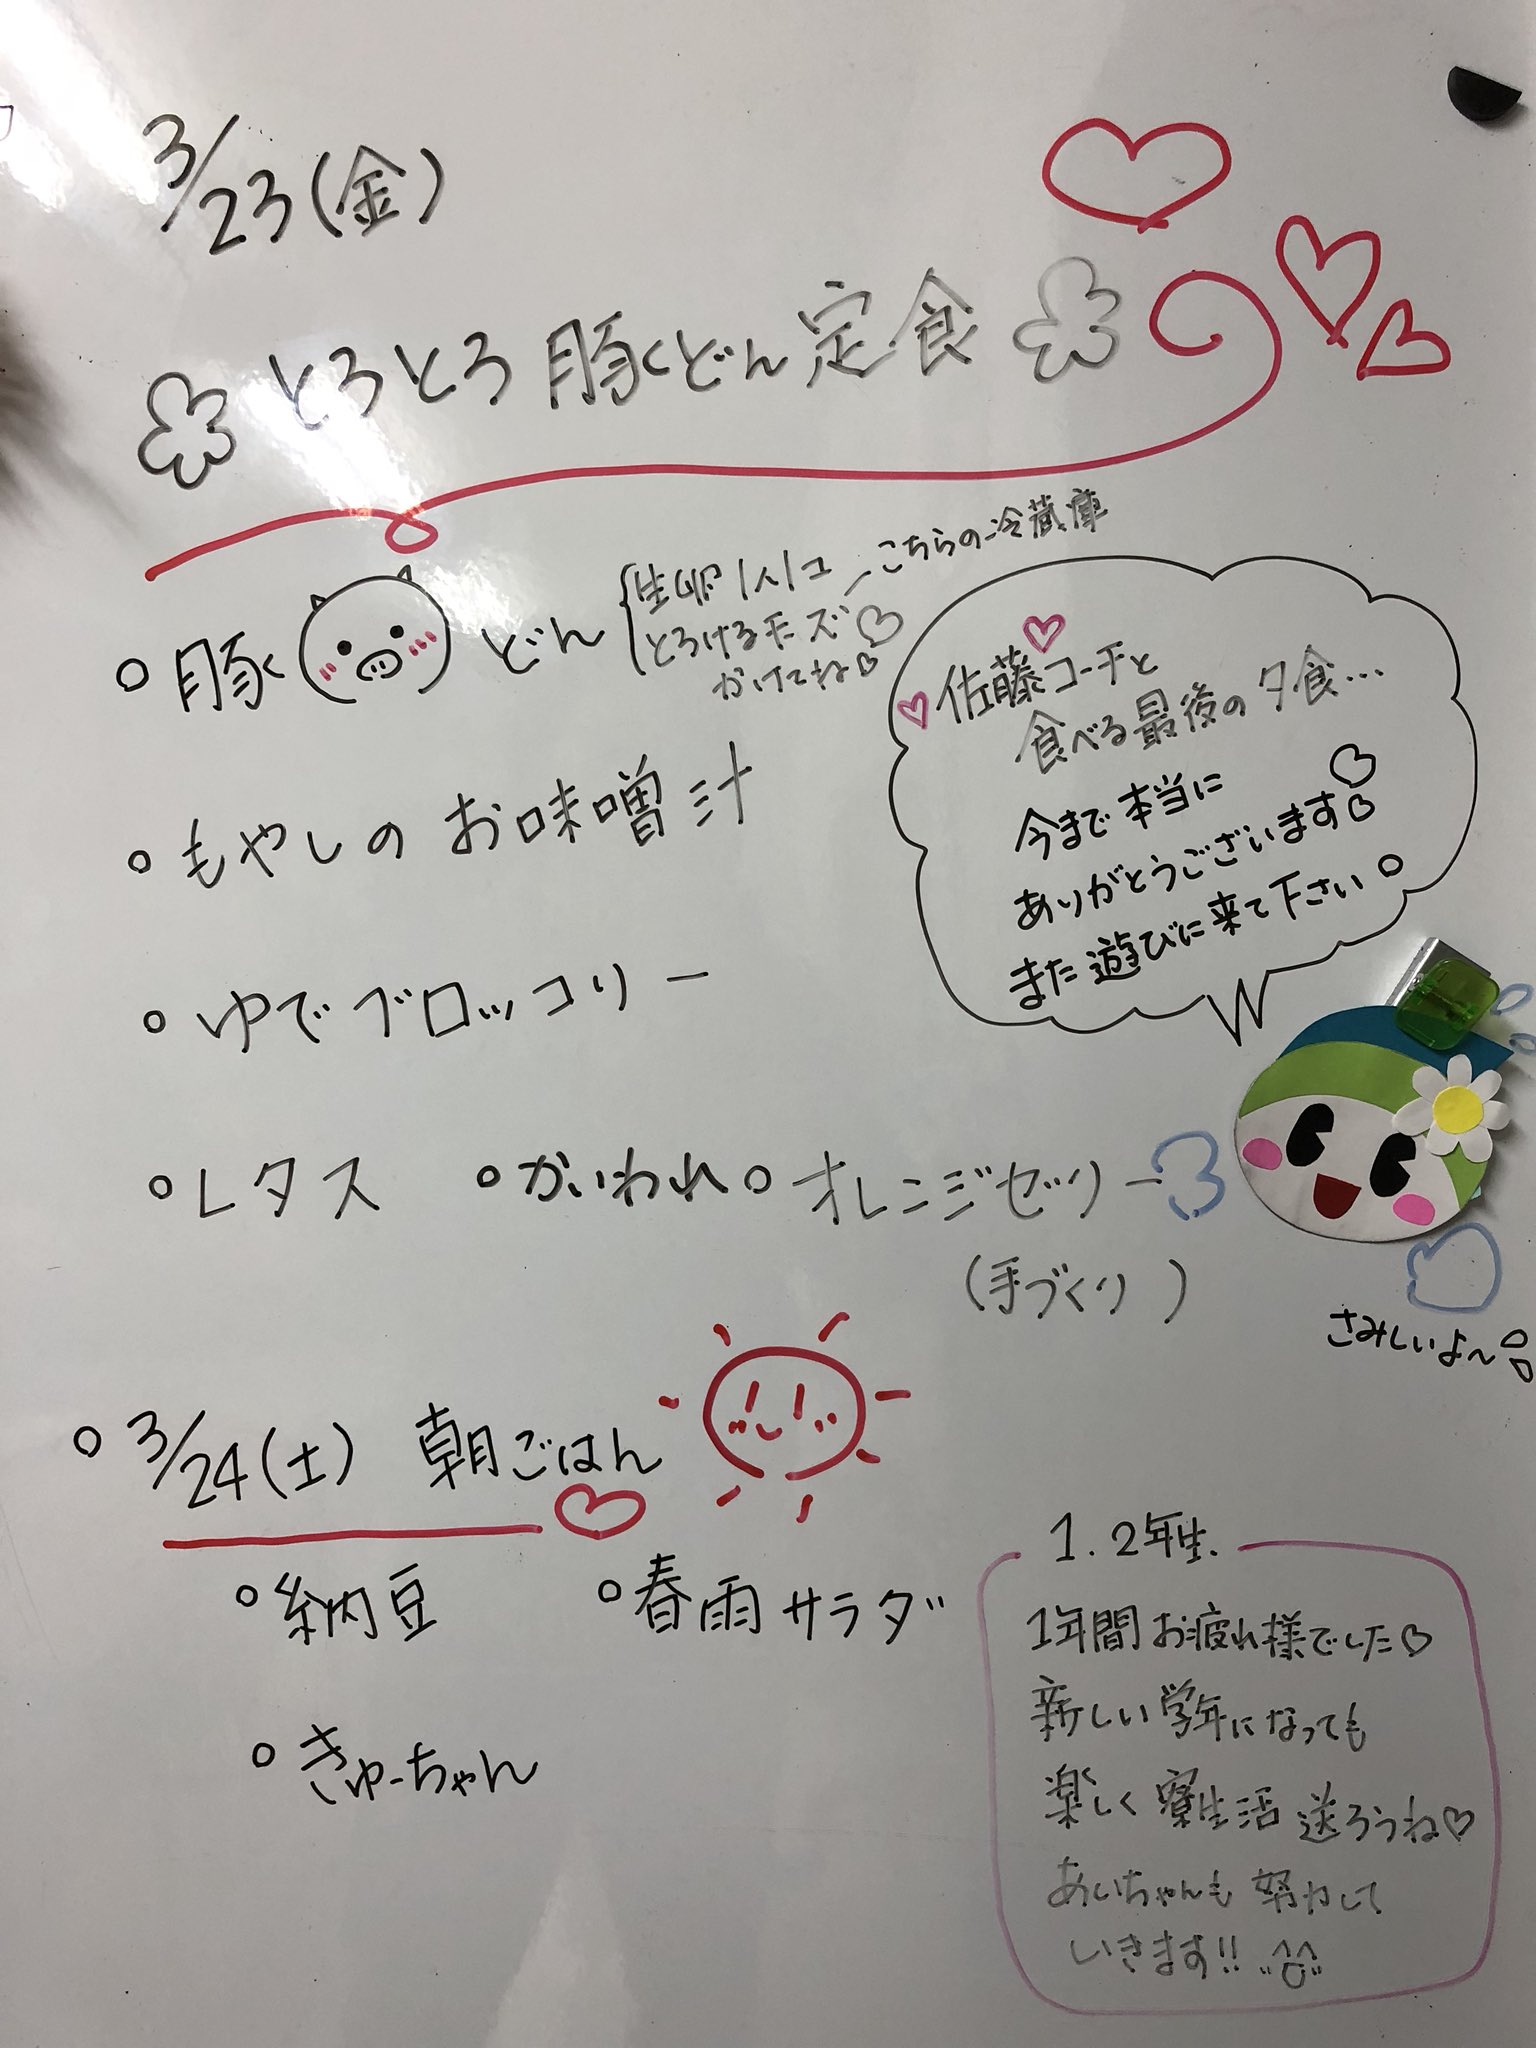 3/23(金)
とろとろ豚くどん定食
豚く どん
生卵1人1コ―こちらの冷蔵庫
とろけるチーズ
かけてね♡
♡佐藤コーチと
食べる最後の夕食...
今まで本当に
ありがとうございます♡
また遊びに来て下さい。
もやしのお味噌汁
ゆでブロッコリー
レタス
かいわれ
オレンジゼリー
(手づくり)
さみしいよ〜
3/24(土) 朝ごはん
納豆
春雨サラダ
きゅーちゃん
1.2年生.
1年間お疲れ様でした♡
新しい学年になっても
楽しく寮生活送ろうね♡
あいちゃんも努力して
いきます!!